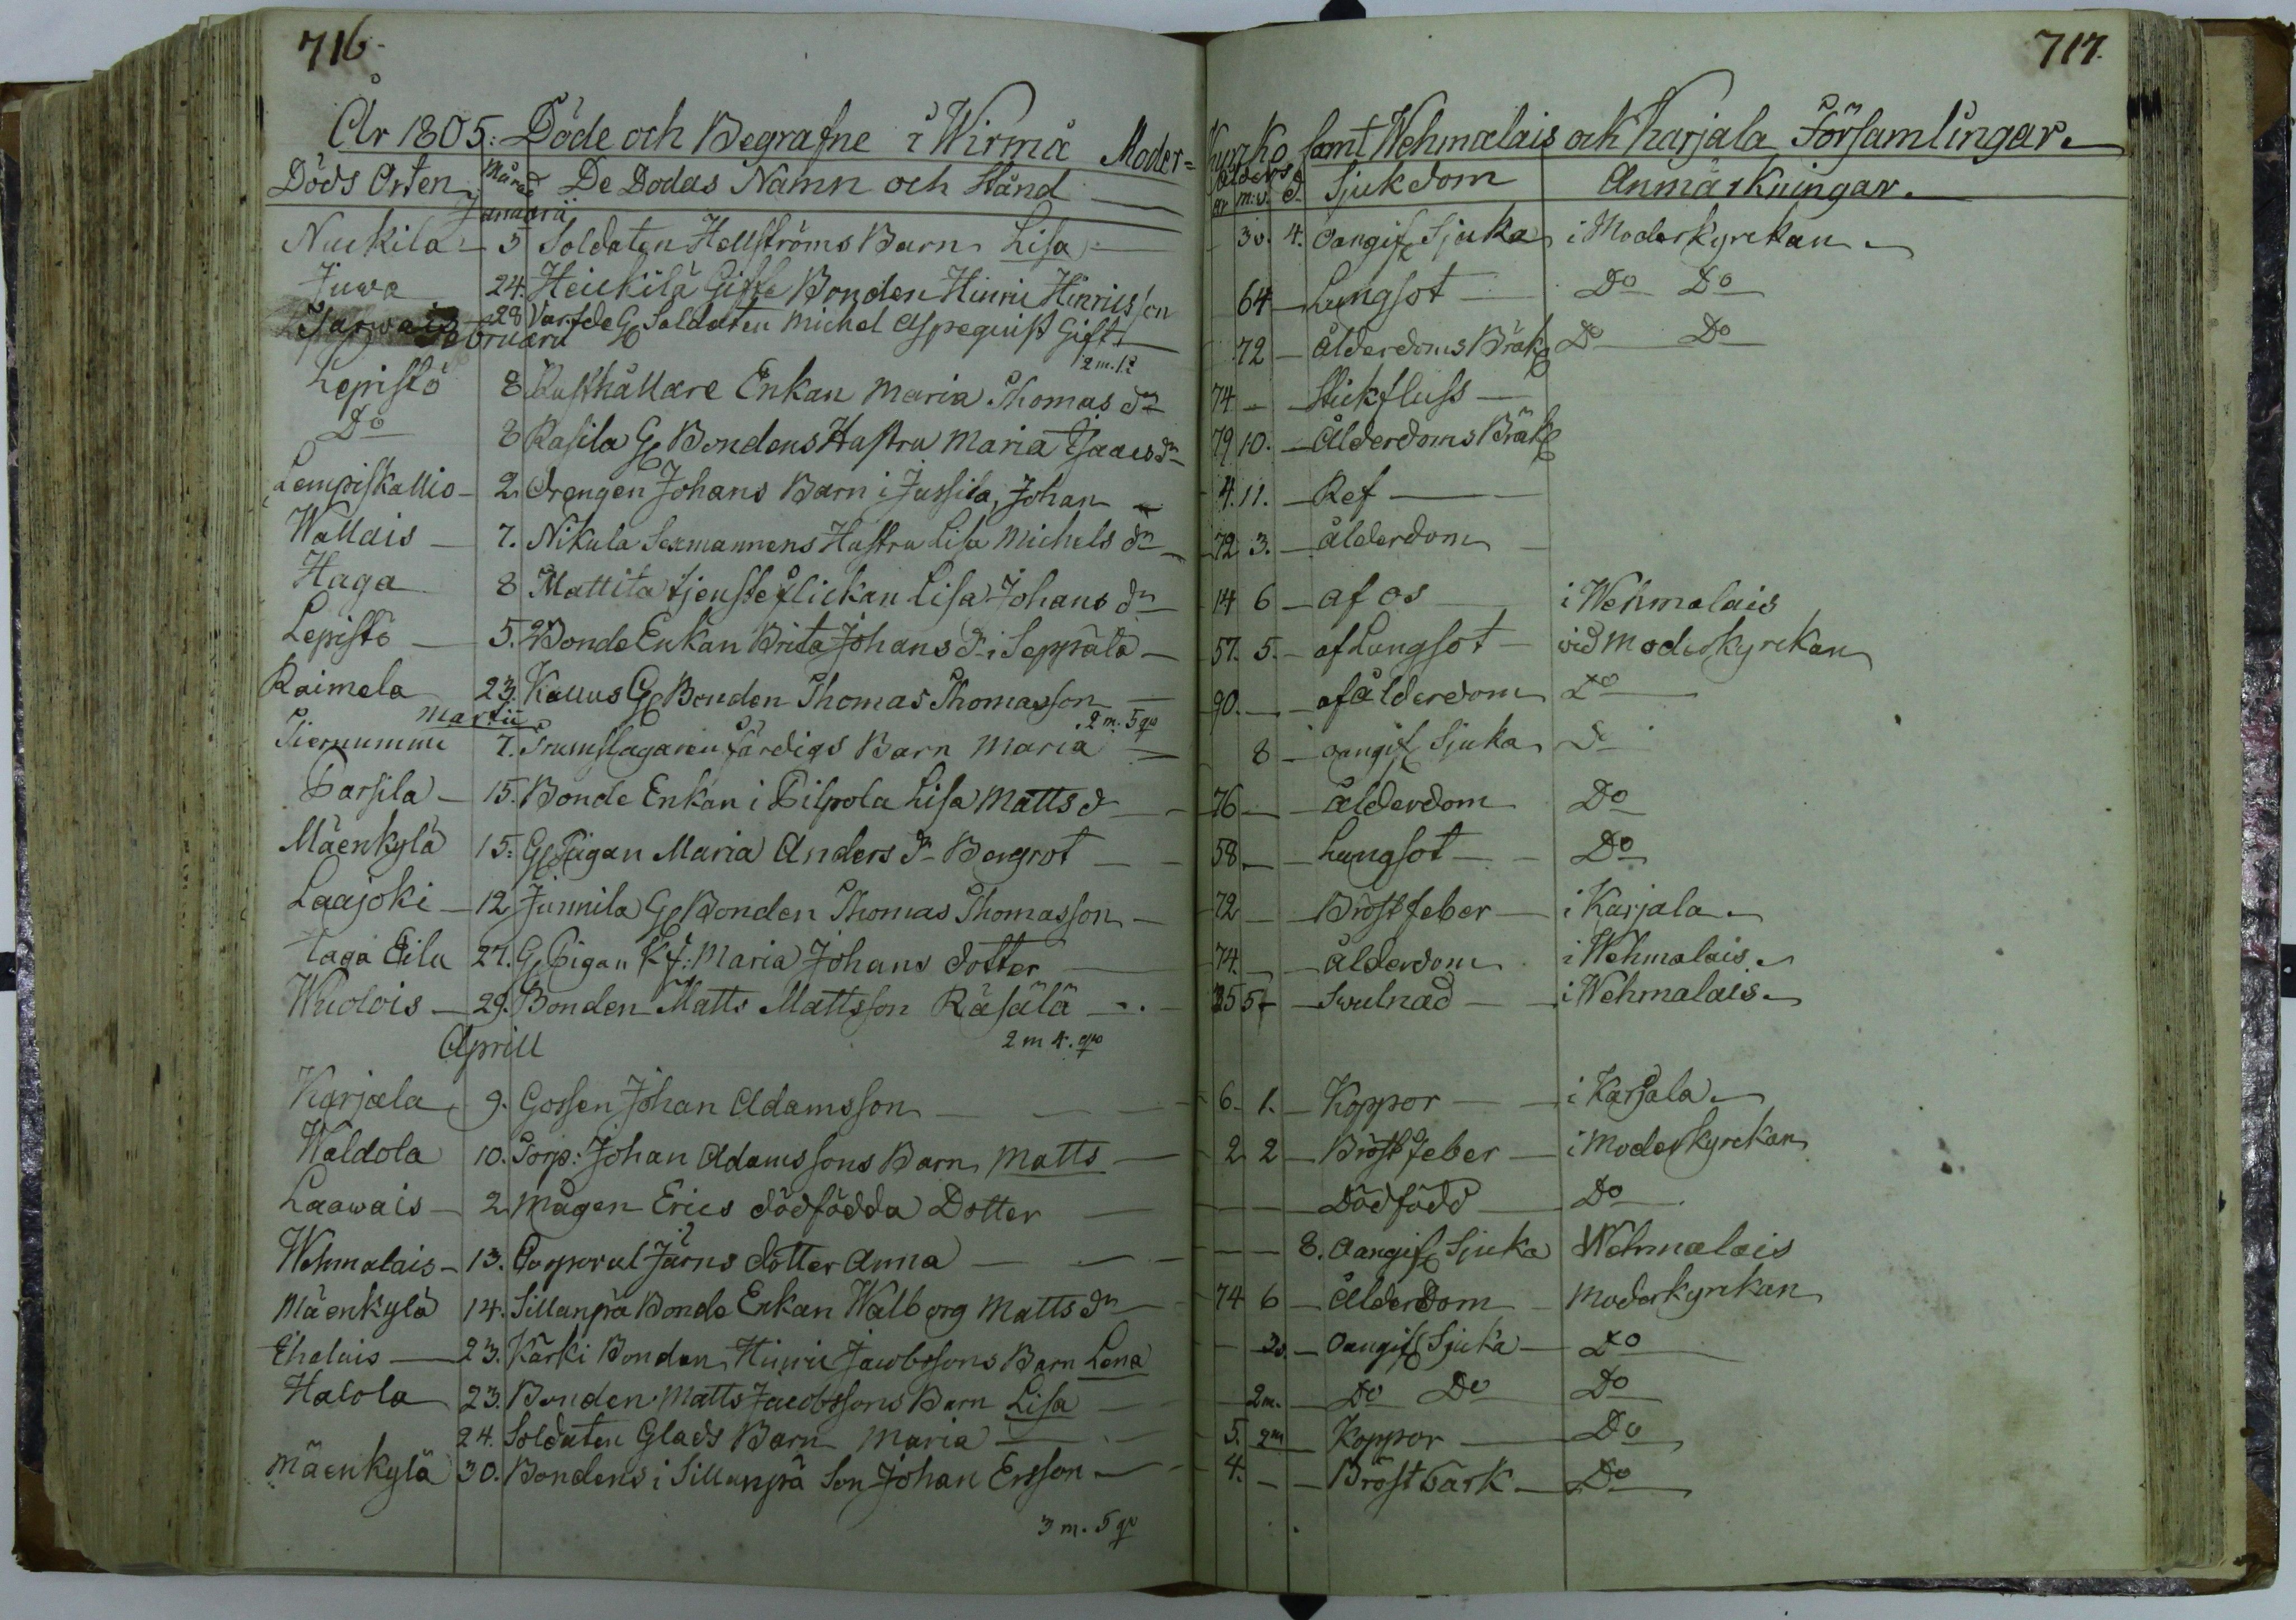 716.
År 1805: Döde och Begrafne i Wirmå Moder-
Döds Orten Månad De Dödas Namn och Stånd
Januarii
Nuckila 5 Soldaten Hellströms Barn Lisa
Juwa 24. Heickilä Gifte Bonden Hinric Hinricsson
Jarwais 28 Varfde G Soldaten Michel Aspequist Gift
Februarii 2 m. 1 q
Lepistö 8 Rusthållare Enkan Maria Thomas dr
Do 8 Rasila G Bondens Hustru Maria Isaacs dr
Lempiskallio 2. Drengen Johans Barn i Jussila, Johan
Wallais 7. Nikula Sexmannens Hustru Lisa Michels dr
Haga 8 Mattila tjensteflickan Lisa Johans dr
Lepistö 5. Bonde Enkan Brita Johans dr i Seppälä
Raimela 23. Kallus G Bonden Thomas Thomasson
Martii 2 m. 5 qv
Tiernummi 7. Trumslagaren Färdigs Barn Maria
Parsila 15. Bonde Enkan i Pilpola Lisa Matts d
Mäenkylä 15. G Pigan Maria Anders dr Bergrot
Laajoki 12 Junnila G Bonden Thomas Thomasson
Haga Eila 27. G Pigan Maria Johans dotter
Wuolois 29. Bonden Matts Mattsson Räsälä
Aprill 2 m 4. qv
Karjala 9. Gossen Johan Adamsson
Waldola 10. Torp: Johan Adamssons Barn Matts
Laawais 2 Mågen Erics dödfödda Dotter
Wehmalais 13. Corporal Järns dotter Anna
Mäenkylä 14. Sillanpä Bonde Enkan Walborg Matts dr
Ehalais 23. Karki Bonden Hinric Jacobssons Barn Lena
Halola 23. Bonden Matts Jacobssons Barn Lisa
24. Soldaten Glads Barn Maria
Mäenkylä 30. Bondens i Sillanpä Son Johan Ersson
3 m. 5 qv
717.
Kyrko samt Wehmalais och Karjala Församlingar.
Ålders
år m: v. d. Sjukdom Anmärkningar.
3 v. 4. Oangif Sjuka i Moderkyrckan
64 Lungsot Do Do
72 ålderdoms Bräk Do Do
74 Stickfluss
79 10. Ålderdoms Bräk
4. 11. Ref
72 3. ålderdom
14 6 af os i Wehmalais
57. 5. af Lungsot vid Moderkyrckan
90. af ålderdom Do
8 oangif Sjuka Do
76 Ålderdom Do
58 Lungsot Do
72 Bröstfeber i Karjala
74. ålderdom i Wehmalais
35 5 Swulnad i Wehmalais
6. 1. Koppor i Karjala
2 2 Bröstfeber i Moderkyrckan
Dödfödd Do
8. Oangif Sjuka Wehmalais
74 6 Ålderdom Moderkyrckan
3 v. Oangif Sjuka Do
2 m. Do Do Do
5. 2 m Koppor Do
4. Bröstwärk Do